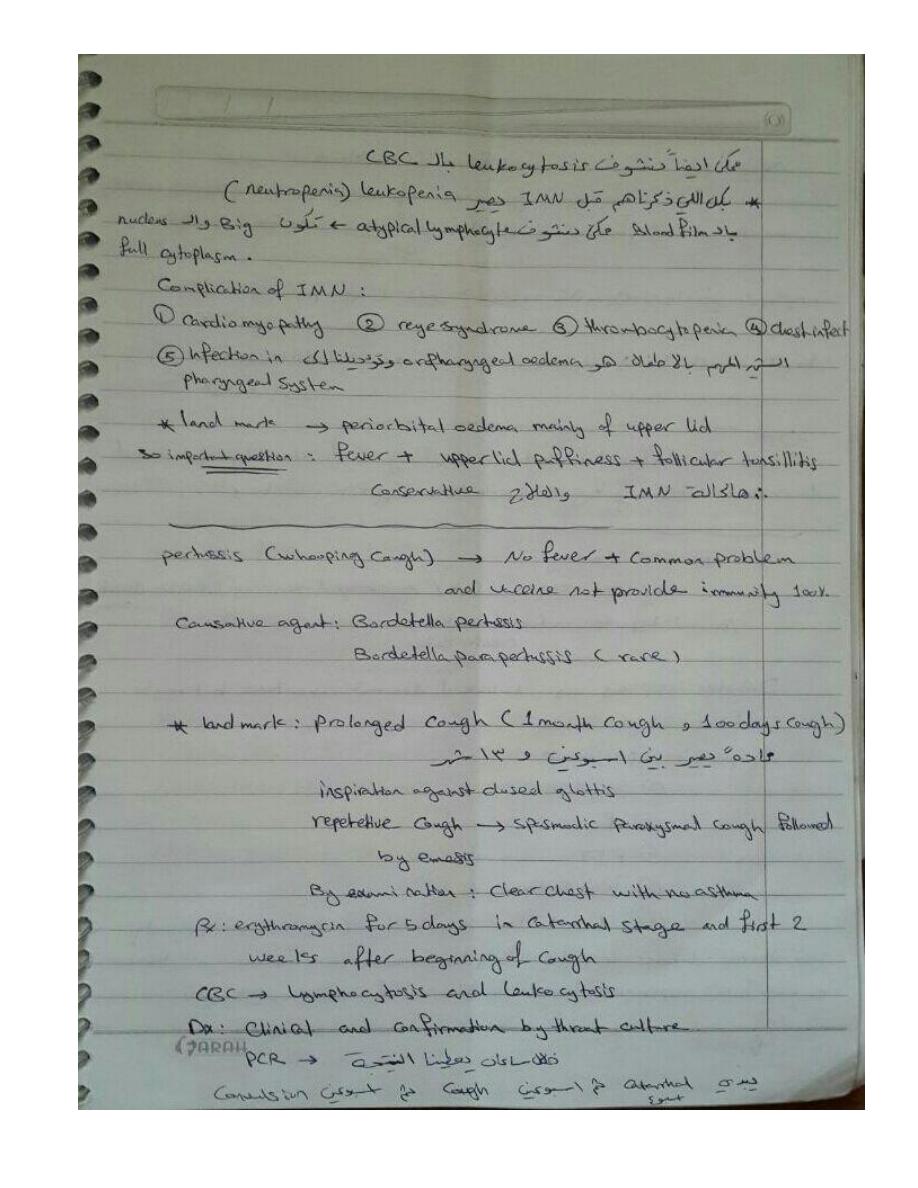 ممكن ايضاً منشوف leukocytosis بالـ CBC
* بكل اللي ذكرناهم قبل IMN بصير leukopenia (neutropenia)
بالـ Blood film ممكن منشوف atypical lymphocyte ← تكون Big والـ nucleus
full cytoplasm.
Complication of IMN :
① Cardiomyopathy ② reye syndrome ③ thrombocytopenia ④ chest infect
⑤ Infection in oropharyngeal oedema هو بالاطفال المهم
pharyngeal system
* land mark → periorbital oedema mainly of upper lid
so important question : fever + upper lid puffiness + follicular tonsillitis
∴ هالحالة IMN والعلاج Conservative
pertussis (whooping cough) → No fever + Common problem
and vaccine not provide immunity 100%
Causative agent: Bordetella pertussis
Bordetella parapertussis (rare)
* land mark: Prolonged Cough (1 month cough , 100 days cough)
عادةً بصير بين اسبوعين و ١٣ شهر
inspiration against closed glottis
repetetive cough → spasmodic paroxysmal cough followed
by emesis
By examination : clear chest with no asthma
Rx: erythromycin for 5 days in catarrhal stage and first 2
weeks after beginning of cough
CBC → lymphocytosis and leukocytosis
Dx: clinical and confirmation by throat culture
PCR → خلال ساعات يعطينا النتيجة
يبدي catarrhal اسبوع ثم اسبوعين Cough ثم اسبوعين Convulsion
ARAH